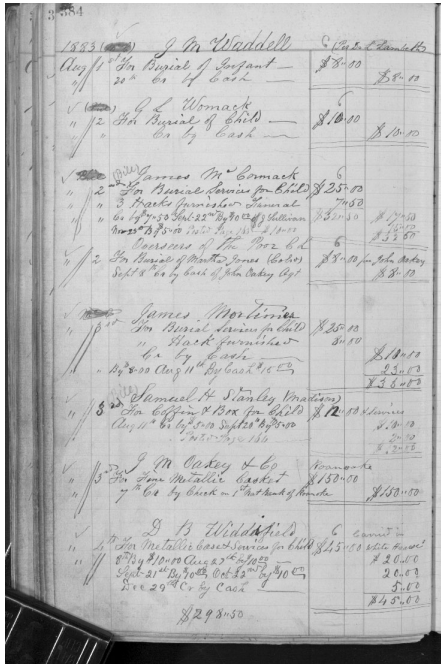 384
1883 J M Waddell 6
Aug 1st For Burial of Infant — $8.00
" 20th Cr by Cash $8.00
G L Womack 6
" 2 For Burial of Child — $10.00
" Cr by Cash — $10.00
James McCormack 6
" 2nd For Burial Service for Child $25.00
" 3 Hacks furnished Funeral 7.50
" Cr by $7.50 Sept 22nd By $10 of J Sullivan $32.50 $17.50
$32.50
Overseers of the Poor 6
" 2 For Burial of Martha Jones $8.00 for John Oakey
Sept 8th Cr by Cash of John Oakey Agt $8.00
James Mortimer 6
" 3rd For Burial Services for Child $25.00
" Hack furnished 8.00
Cr by Cash — $10.00
" By $8.00 Aug 11th By Cash $15.00 23.00
Samuel H Stanley (Madison)
" 3rd For Coffin & Box for Child $12.00
Aug 11th Cr by $5.00 Sept 20th By $5.00
J M Oakey & Co Roanoke
" 5th For Fine Metallic Casket $150.00
" 7th Cr by Check on 1st Nat Bank of Roanoke $150.00
D B Widdifield 6
" For Metallic Case & Services for Child $45.00 White Hearse
8th By $10.00 Aug 25th by $10.00 $20.00
Sept 21st By $10.00 Oct 22nd by $10.00 20.00
Dec 29th Cr by Cash 5.00
$45.00
$298.50